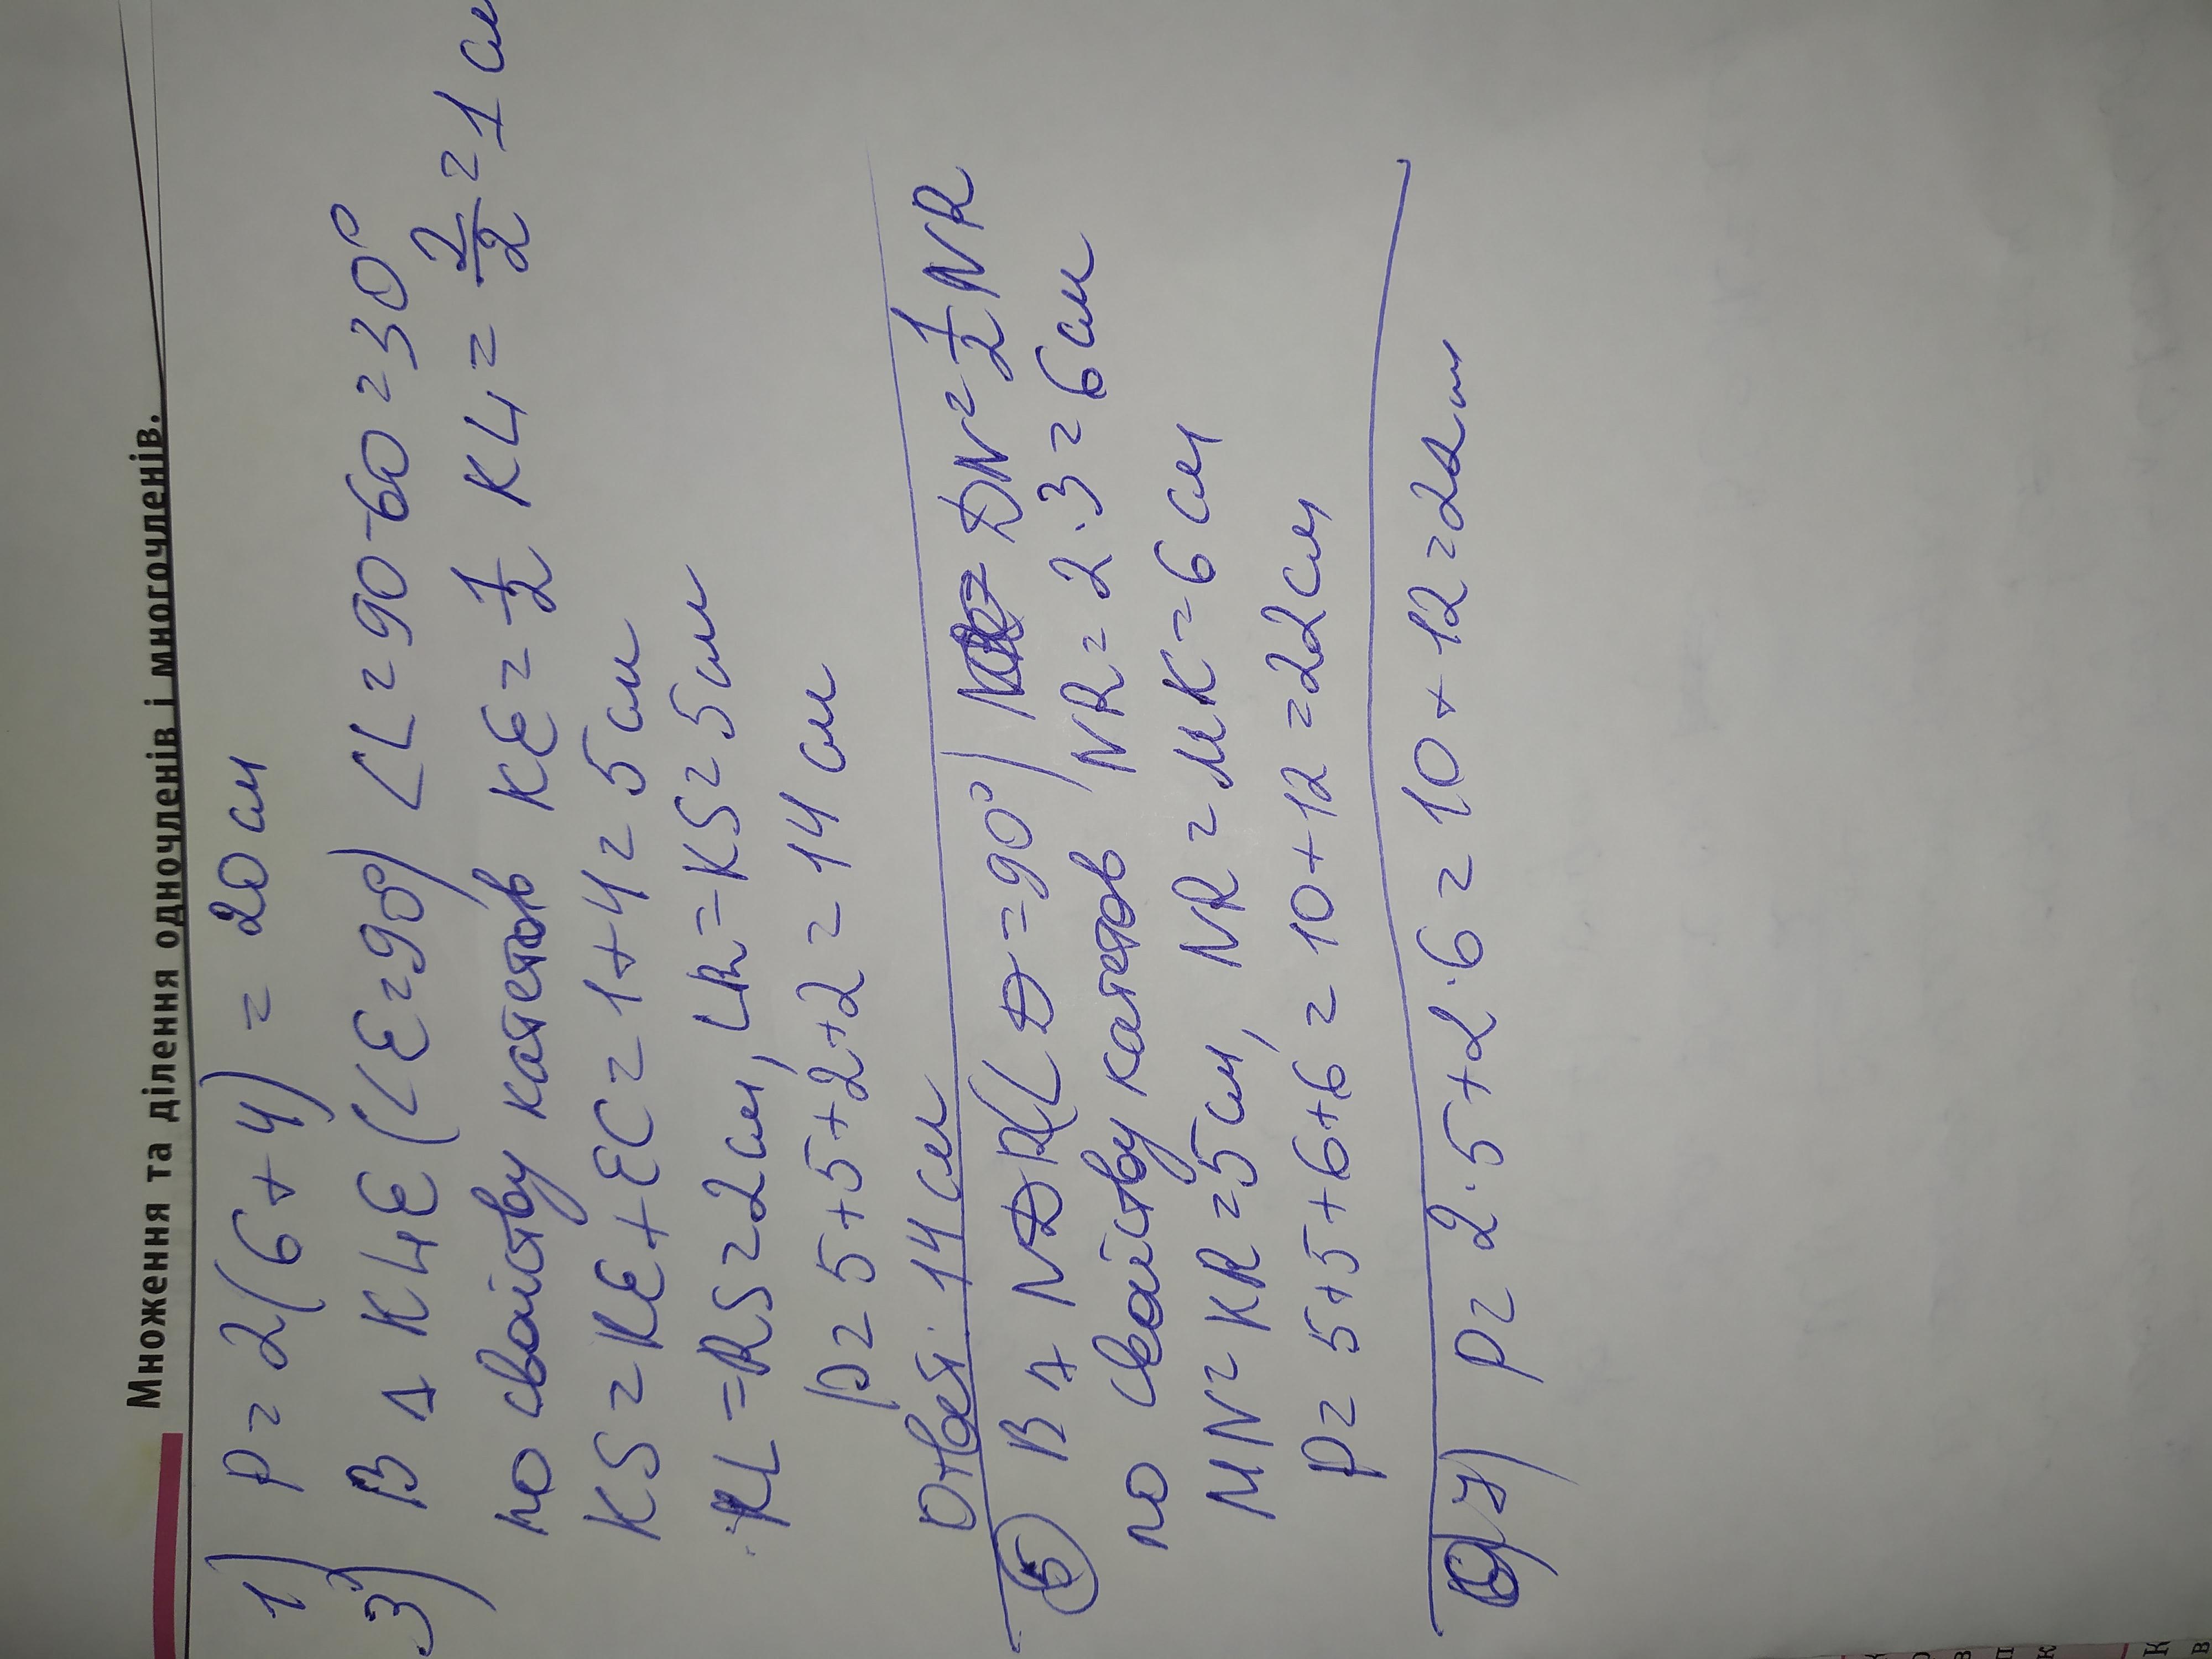 Множення та ділення одночленів і многочленів.
1) P = 2(6+4) = 20 см
3) В Δ KLE (∠E=90°) ∠L = 90-60 = 30°
по свойству катетов KE = 1/2 KL = 2/2 = 1 см
KS = KE + EC = 1+4 = 5 см
KL = RS = 2 см, LR = KS = 5 см
P = 5+5+2+2 = 14 см
Ответ: 14 см
5) В Δ NDR (∠D = 90°) DN = 1/2 NR
по свойству катетов NR = 2·3 = 6 см
MN = KR = 5 см, NR = MK = 6 см
P = 5+5+6+6 = 10+12 = 22 см
7) P = 2·5+2·6 = 10+12 = 22 см